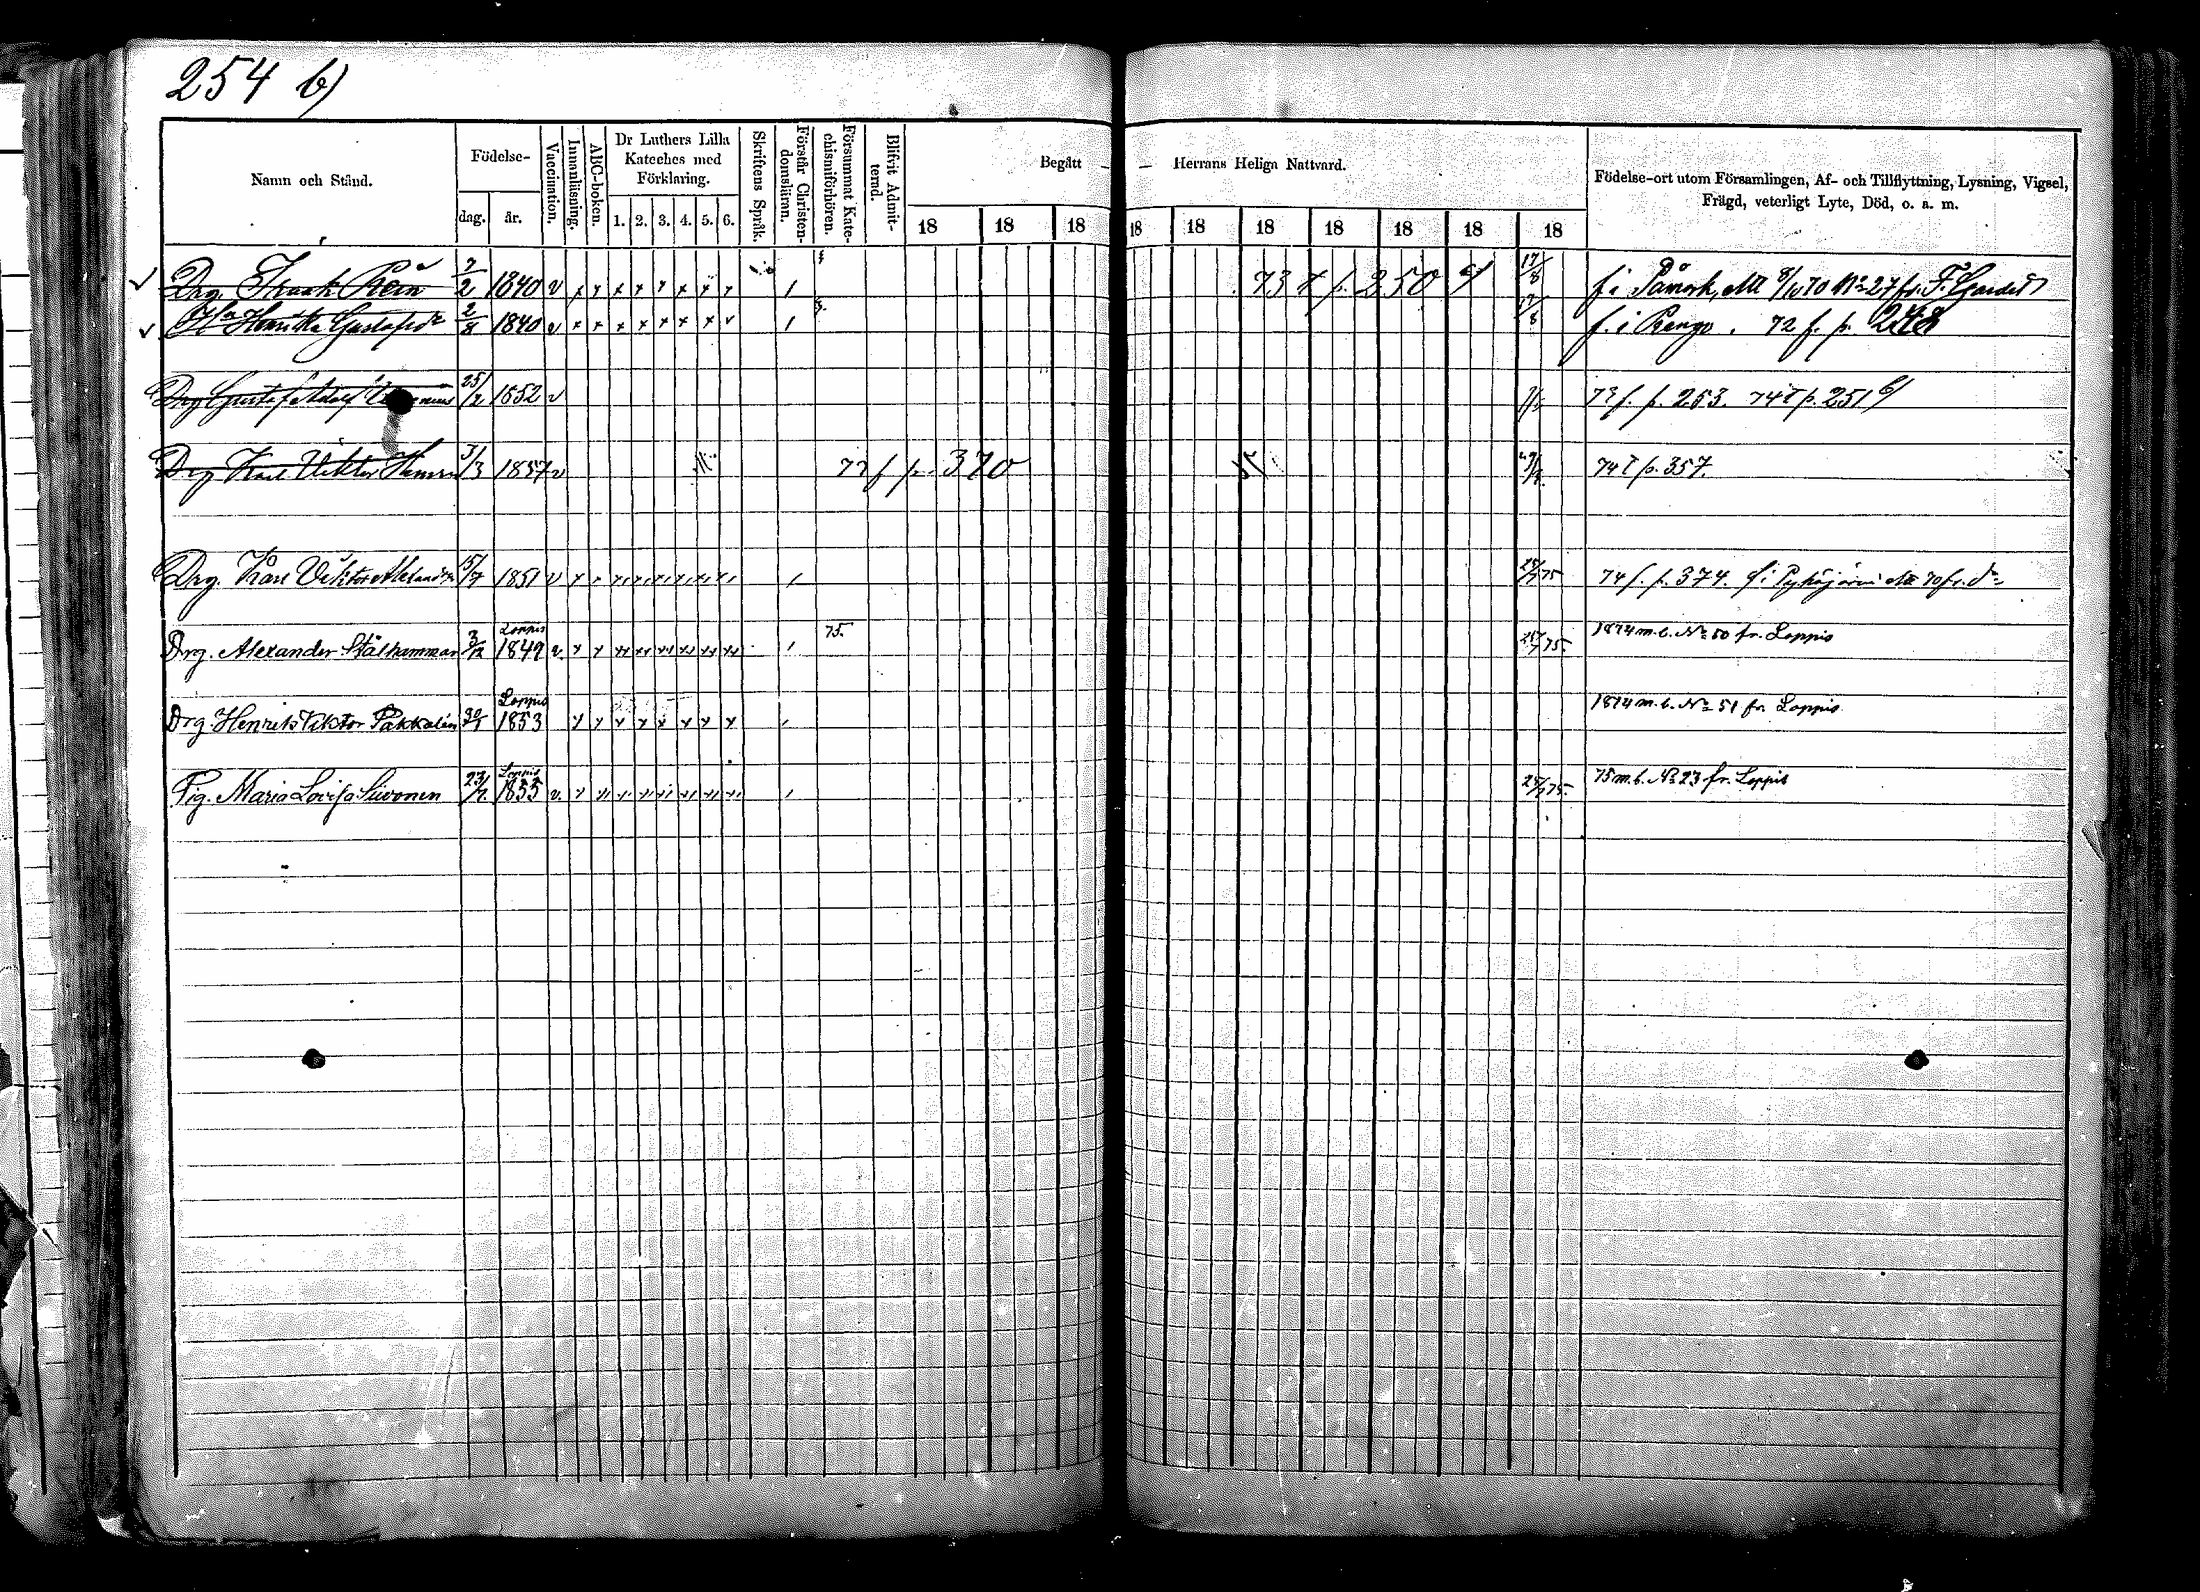 254 b)
Namn och Stånd.
Födelse-
dag. år.
Vaccination.
Innanläsning.
ABC-boken.
Dr Luthers Lilla
Kateches med
Förklaring.
1. 2. 3. 4. 5. 6.
Skriftens Språk.
Förstår Christen-
domsläran.
Försummat Kate-
chismiförhören.
Blifvit Admit-
terad.
Begått — — Herrans Heliga Nattvard.
18 18 18 18 18 18 18 18 18 18
Födelse-ort utom Församlingen, Af- och Tillflyttning, Lysning, Vigsel,
Frägd, veterligt Lyte, Död, o. a. m.
Drg. 7/2 1840 v 73 t p. 250 17/8 f. i 8/10 70 No 27 fr.
Hu Henrika Gustafsdr 2/8 1840 v f. i Rengo. 72 f. p. 248
Drg Gustaf Adolf 25/12 1852 v 73 f. p. 253. 74 t p. 251 b/
Drg Karl Viktor 3/3 1857 v 72 f p. 370 74 t p. 357.
Drg. Karl Viktor 15/7 1851 v 25/7 75 74 f. p. 374. f i Pyhäjärvi 70 fr. do
Drg. Alexander Stålhammar 3/12 Loppis 1849 v. 75. 25/7 75. 1874 m. b. No 50 fr. Loppis
Drg. Henrik Viktor Pakkalén Loppis 1853 1874 m. b. No 51 fr. Loppis
Pig. Maria Lovisa Siivonen 23/7 Loppis 1855 v. 25/7 75. 75 m. b. No 23 fr. Loppis